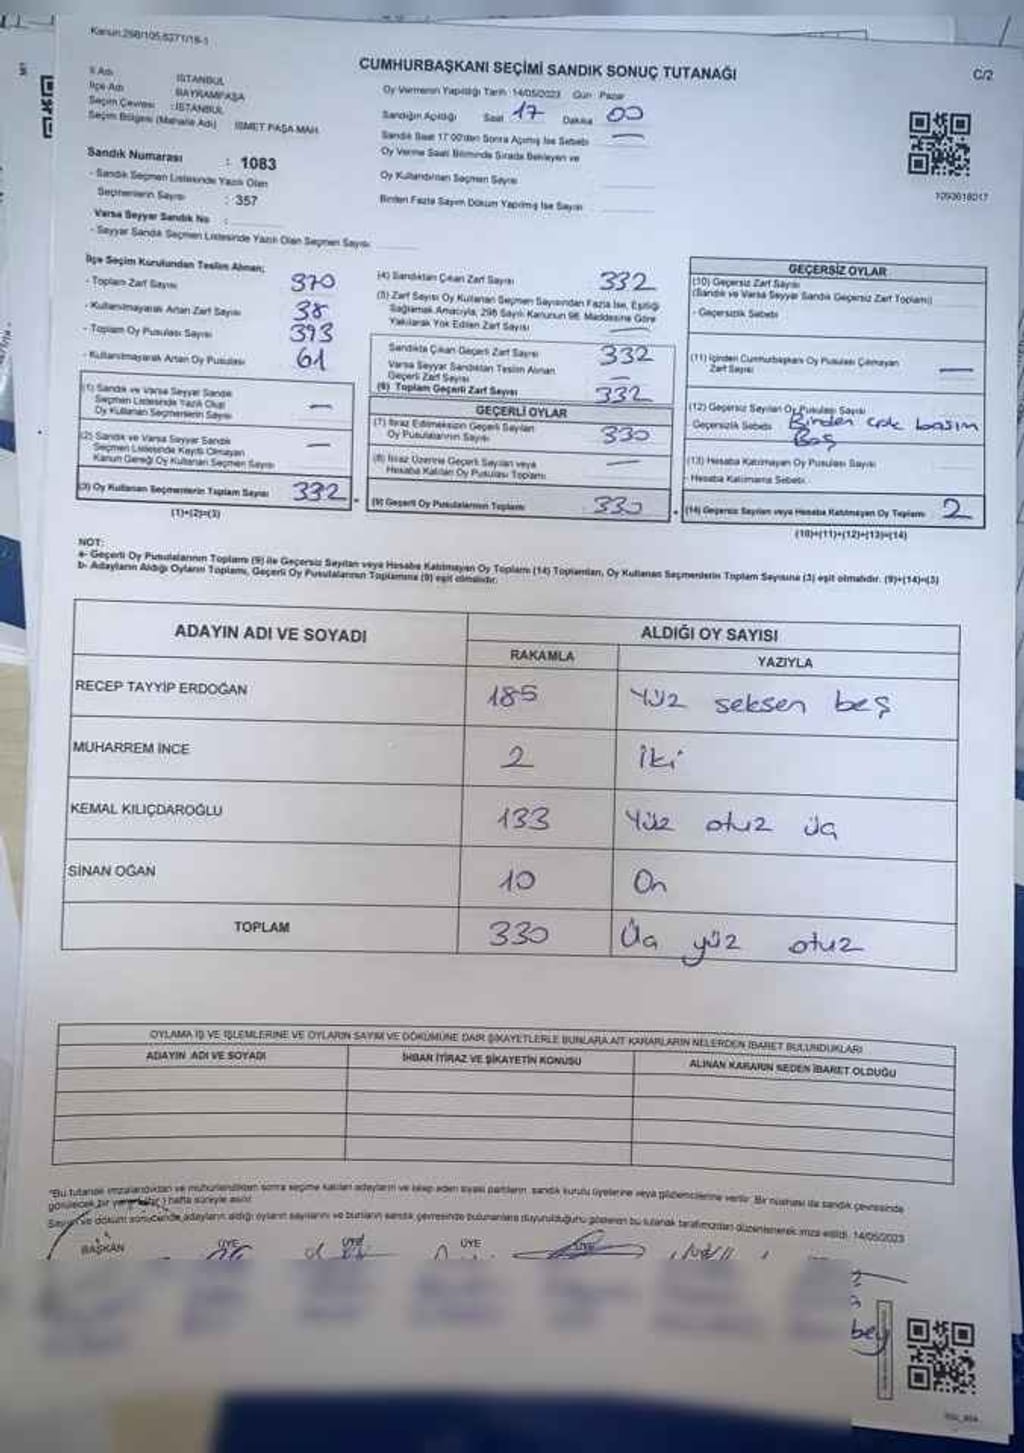 Kanun:298/105,6271/18-1
CUMHURBAŞKANI SEÇİMİ SANDIK SONUÇ TUTANAĞI
C/2
İl Adı : İSTANBUL
İlçe Adı : BAYRAMPAŞA
Seçim Çevresi : İSTANBUL
Seçim Bölgesi (Mahalle Adı) : İSMET PAŞA MAH.
Oy Vermenin Yapıldığı Tarih 14/05/2023 Gün Pazar
Sandığın Açıldığı Saat 17 Dakika 00
Sandık Saat 17:00'den Sonra Açılmış İse Sebebi —
Oy Verme Saati Bitiminde Sırada Bekleyen ve
Oy Kullandırılan Seçmen Sayısı
Birden Fazla Sayım Döküm Yapılmış İse Sayısı
1090618017
Sandık Numarası : 1083
- Sandık Seçmen Listesinde Yazılı Olan
Seçmenlerin Sayısı : 357
Varsa Seyyar Sandık No :
- Seyyar Sandık Seçmen Listesinde Yazılı Olan Seçmen Sayısı
İlçe Seçim Kurulundan Teslim Alınan;
- Toplam Zarf Sayısı 370
- Kullanılmayarak Artan Zarf Sayısı 38
- Toplam Oy Pusulası Sayısı 393
- Kullanılmayarak Artan Oy Pusulası 61
(1) Sandık ve Varsa Seyyar Sandık
Seçmen Listesinde Yazılı Olup
Oy Kullanan Seçmenlerin Sayısı —
(2) Sandık ve Varsa Seyyar Sandık
Seçmen Listesinde Kayıtlı Olmayan
Kanun Gereği Oy Kullanan Seçmen Sayısı —
(3) Oy Kullanan Seçmenlerin Toplam Sayısı 332
(1)+(2)=(3)
(4) Sandıktan Çıkan Zarf Sayısı 332
(5) Zarf Sayısı Oy Kullanan Seçmen Sayısından Fazla İse, Eşitliği
Sağlamak Amacıyla, 298 Sayılı Kanunun 98. Maddesine Göre
Yakılarak Yok Edilen Zarf Sayısı —
Sandıkta Çıkan Geçerli Zarf Sayısı 332
Varsa Seyyar Sandıktan Teslim Alınan
Geçerli Zarf Sayısı —
(6) Toplam Geçerli Zarf Sayısı 332
GEÇERLİ OYLAR
(7) İtiraz Edilmeksizin Geçerli Sayılan
Oy Pusulalarının Sayısı 330
(8) İtiraz Üzerine Geçerli Sayılan veya
Hesaba Katılan Oy Pusulası Toplamı —
(9) Geçerli Oy Pusulalarının Toplamı 330
GEÇERSİZ OYLAR
(10) Geçersiz Zarf Sayısı
(Sandık ve Varsa Seyyar Sandık Geçersiz Zarf Toplamı)
- Geçersizlik Sebebi
(11) İçinden Cumhurbaşkanı Oy Pusulası Çıkmayan
Zarf Sayısı —
(12) Geçersiz Sayılan Oy Pusulası Sayısı
Geçersizlik Sebebi Birden çok basım
Boş
(13) Hesaba Katılmayan Oy Pusulası Sayısı
- Hesaba Katılmama Sebebi
(14) Geçersiz Sayılan veya Hesaba Katılmayan Oy Toplamı 2
(10)+(11)+(12)+(13)=(14)
NOT:
a- Geçerli Oy Pusulalarının Toplamı (9) ile Geçersiz Sayılan veya Hesaba Katılmayan Oy Toplamı (14) Toplamları, Oy Kullanan Seçmenlerin Toplam Sayısına (3) eşit olmalıdır. (9)+(14)=(3)
b- Adayların Aldığı Oyların Toplamı, Geçerli Oy Pusulalarının Toplamına (9) eşit olmalıdır.
ADAYIN ADI VE SOYADI
ALDIĞI OY SAYISI
RAKAMLA YAZIYLA
RECEP TAYYİP ERDOĞAN 185 Yüz seksen beş
MUHARREM İNCE 2 İki
KEMAL KILIÇDAROĞLU 133 Yüz otuz üç
SİNAN OĞAN 10 On
TOPLAM 330 Üç yüz otuz
OYLAMA İŞ VE İŞLEMLERİNE VE OYLARIN SAYIM VE DÖKÜMÜNE DAİR ŞİKAYETLERLE BUNLARA AİT KARARLARIN NELERDEN İBARET BULUNDUKLARI
ADAYIN ADI VE SOYADI İHBAR İTİRAZ VE ŞİKAYETİN KONUSU ALINAN KARARIN NEDEN İBARET OLDUĞU
"Bu tutanak imzalandıktan ve mühürlendikten sonra seçime katılan adayların ve talep eden siyasi partilerin sandık kurulu üyelerine veya gözlemcilerine verilir. Bir nüshası da sandık çevresinde
görülecek bir yere 1 (bir) hafta süreyle asılır.
Sayım ve döküm sonucunda adayların aldığı oyların sayılarını ve bunların sandık çevresinde bulunanlara duyurulduğunu gösteren bu tutanak tarafımızdan düzenlenerek imza edildi. 14/05/2023
BAŞKAN ÜYE ÜYE ÜYE ÜYE
bey